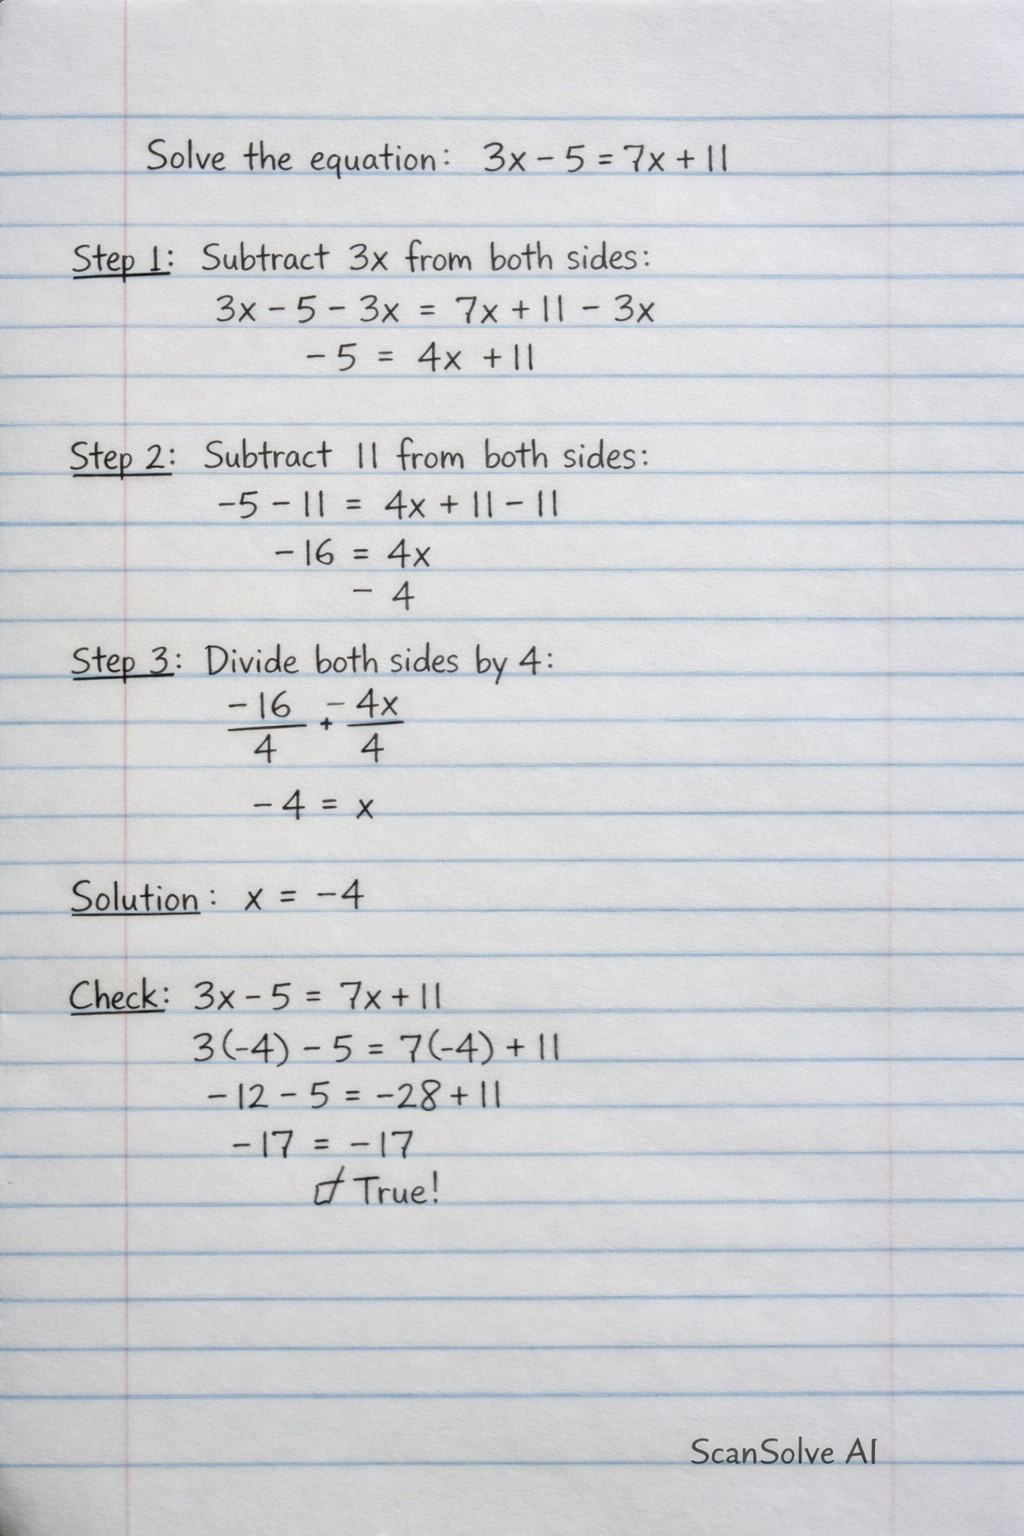 Solve the equation: 3x - 5 = 7x + 11
Step 1: Subtract 3x from both sides:
3x - 5 - 3x = 7x + 11 - 3x
- 5 = 4x + 11
Step 2: Subtract 11 from both sides:
-5 - 11 = 4x + 11 - 11
- 16 = 4x
- 4
Step 3: Divide both sides by 4:
-16/4 + -4x/4
- 4 = x
Solution: x = -4
Check: 3x - 5 = 7x + 11
3(-4) - 5 = 7(-4) + 11
-12 - 5 = -28 + 11
-17 = -17
True!
ScanSolve AI